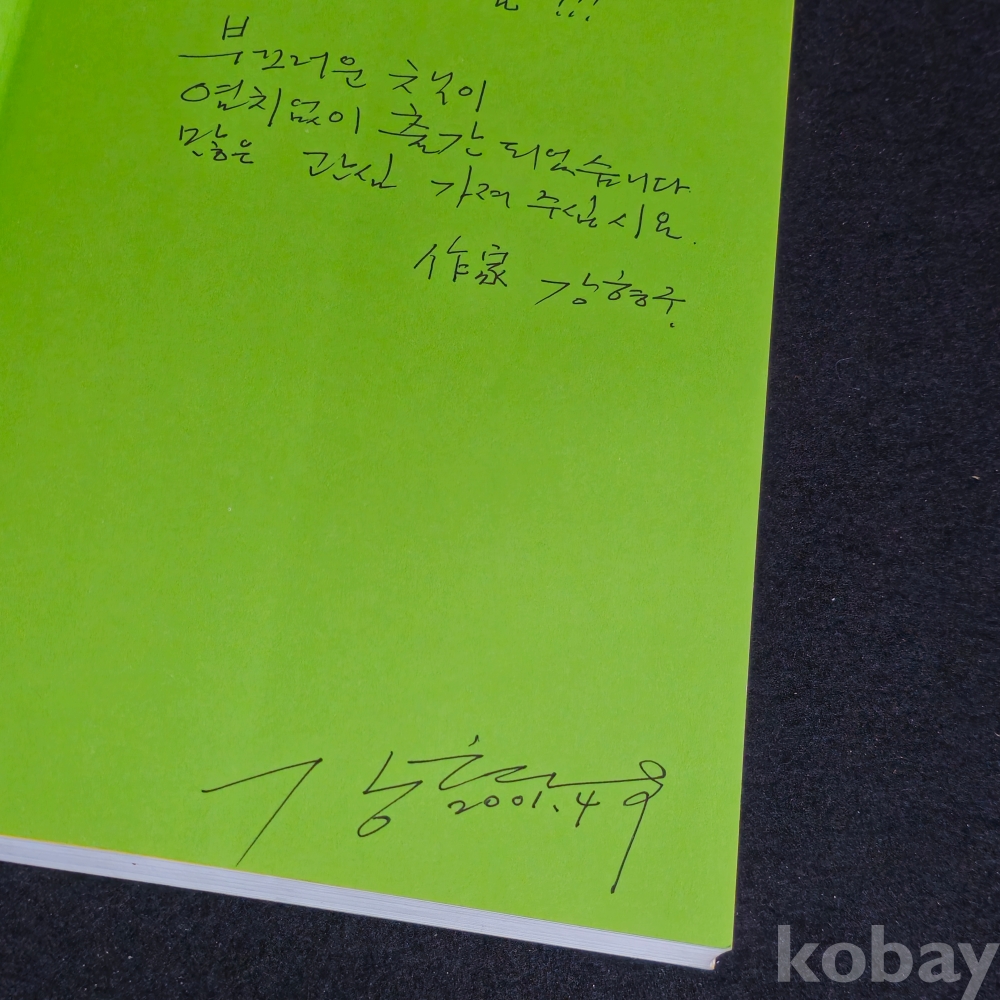 !!!
부끄러운 책이
염치없이 출간 되었습니다
많은 관심 가져 주십시요.
作家 강형구.
2001. 4
kobay